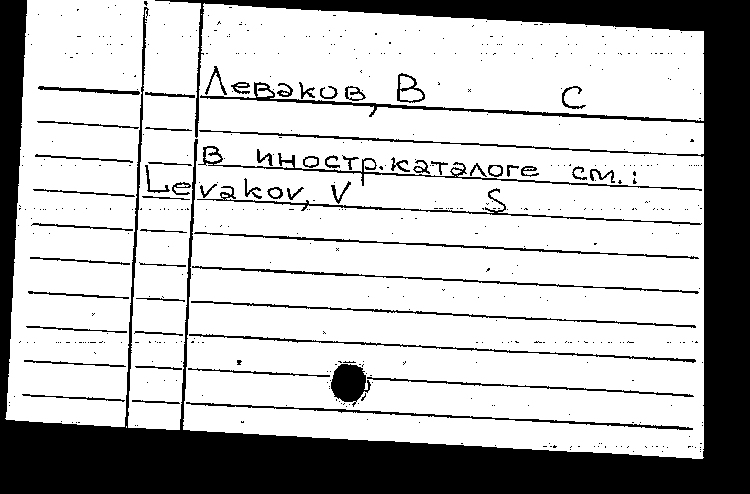 Леваков, В С
В иностр. каталоге см.:
Levakov, V S